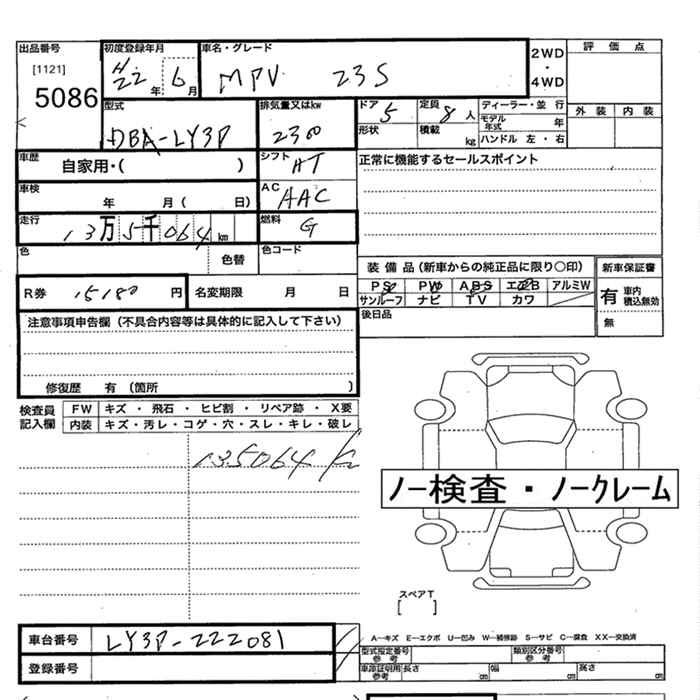 出品番号 [1121] 5086
初度登録年月 H22 年 6 月
車名・グレード MPV 23S
2WD ・ 4WD
評価点
外装 内装
型式 DBA-LY3P
排気量又はkw 2300
ドア 5 定員 8 人
形状 積載 kg
ディーラー・並行
モデル年式 年
ハンドル 左・右
車歴 自家用・( )
シフト AT
正常に機能するセールスポイント
車検 年 月( 日)
AC AAC
走行 13万5千064 km
燃料 G
色 色替 色コード
装備品(新車からの純正品に限り○印)
新車保証書
PS PW ABS エアB アルミW
サンルーフ ナビ TV カワ
有 車内積込無効
無
R券 15180 円 名変期限 月 日
後日品
注意事項申告欄(不具合内容等は具体的に記入して下さい)
修復歴 有(箇所 )
検査員記入欄
FW キズ・飛石・ヒビ割・リペア跡・X要
内装 キズ・汚レ・コゲ・穴・スレ・キレ・破レ
135064 km
ノー検査・ノークレーム
スペアT
[ ]
車台番号 LY3P-222081
登録番号
A―キズ E―エクボ U―凹み W―補修跡 S―サビ C―腐食 XX―交換済
型式指定番号 参考 類別区分番号 参考
車庫証明用 参考 長さ cm 幅 cm 高さ cm